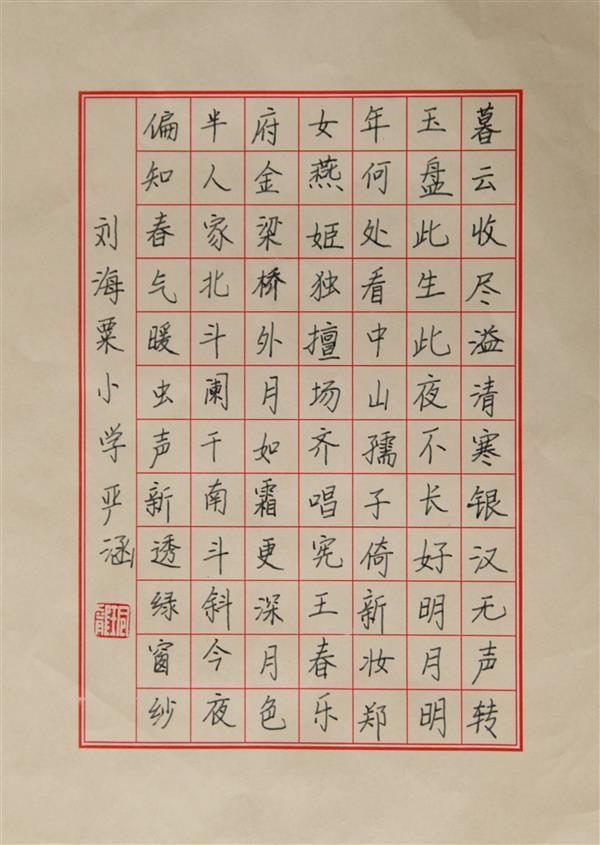 暮云收尽溢清寒银汉无声转
玉盘此生此夜不长好明月明
年何处看中山孺子倚新妆郑
女燕姬独擅场齐唱宪王春乐
府金梁桥外月如霜更深月色
半人家北斗阑干南斗斜今夜
偏知春气暖虫声新透绿窗纱
刘海粟小学严涵